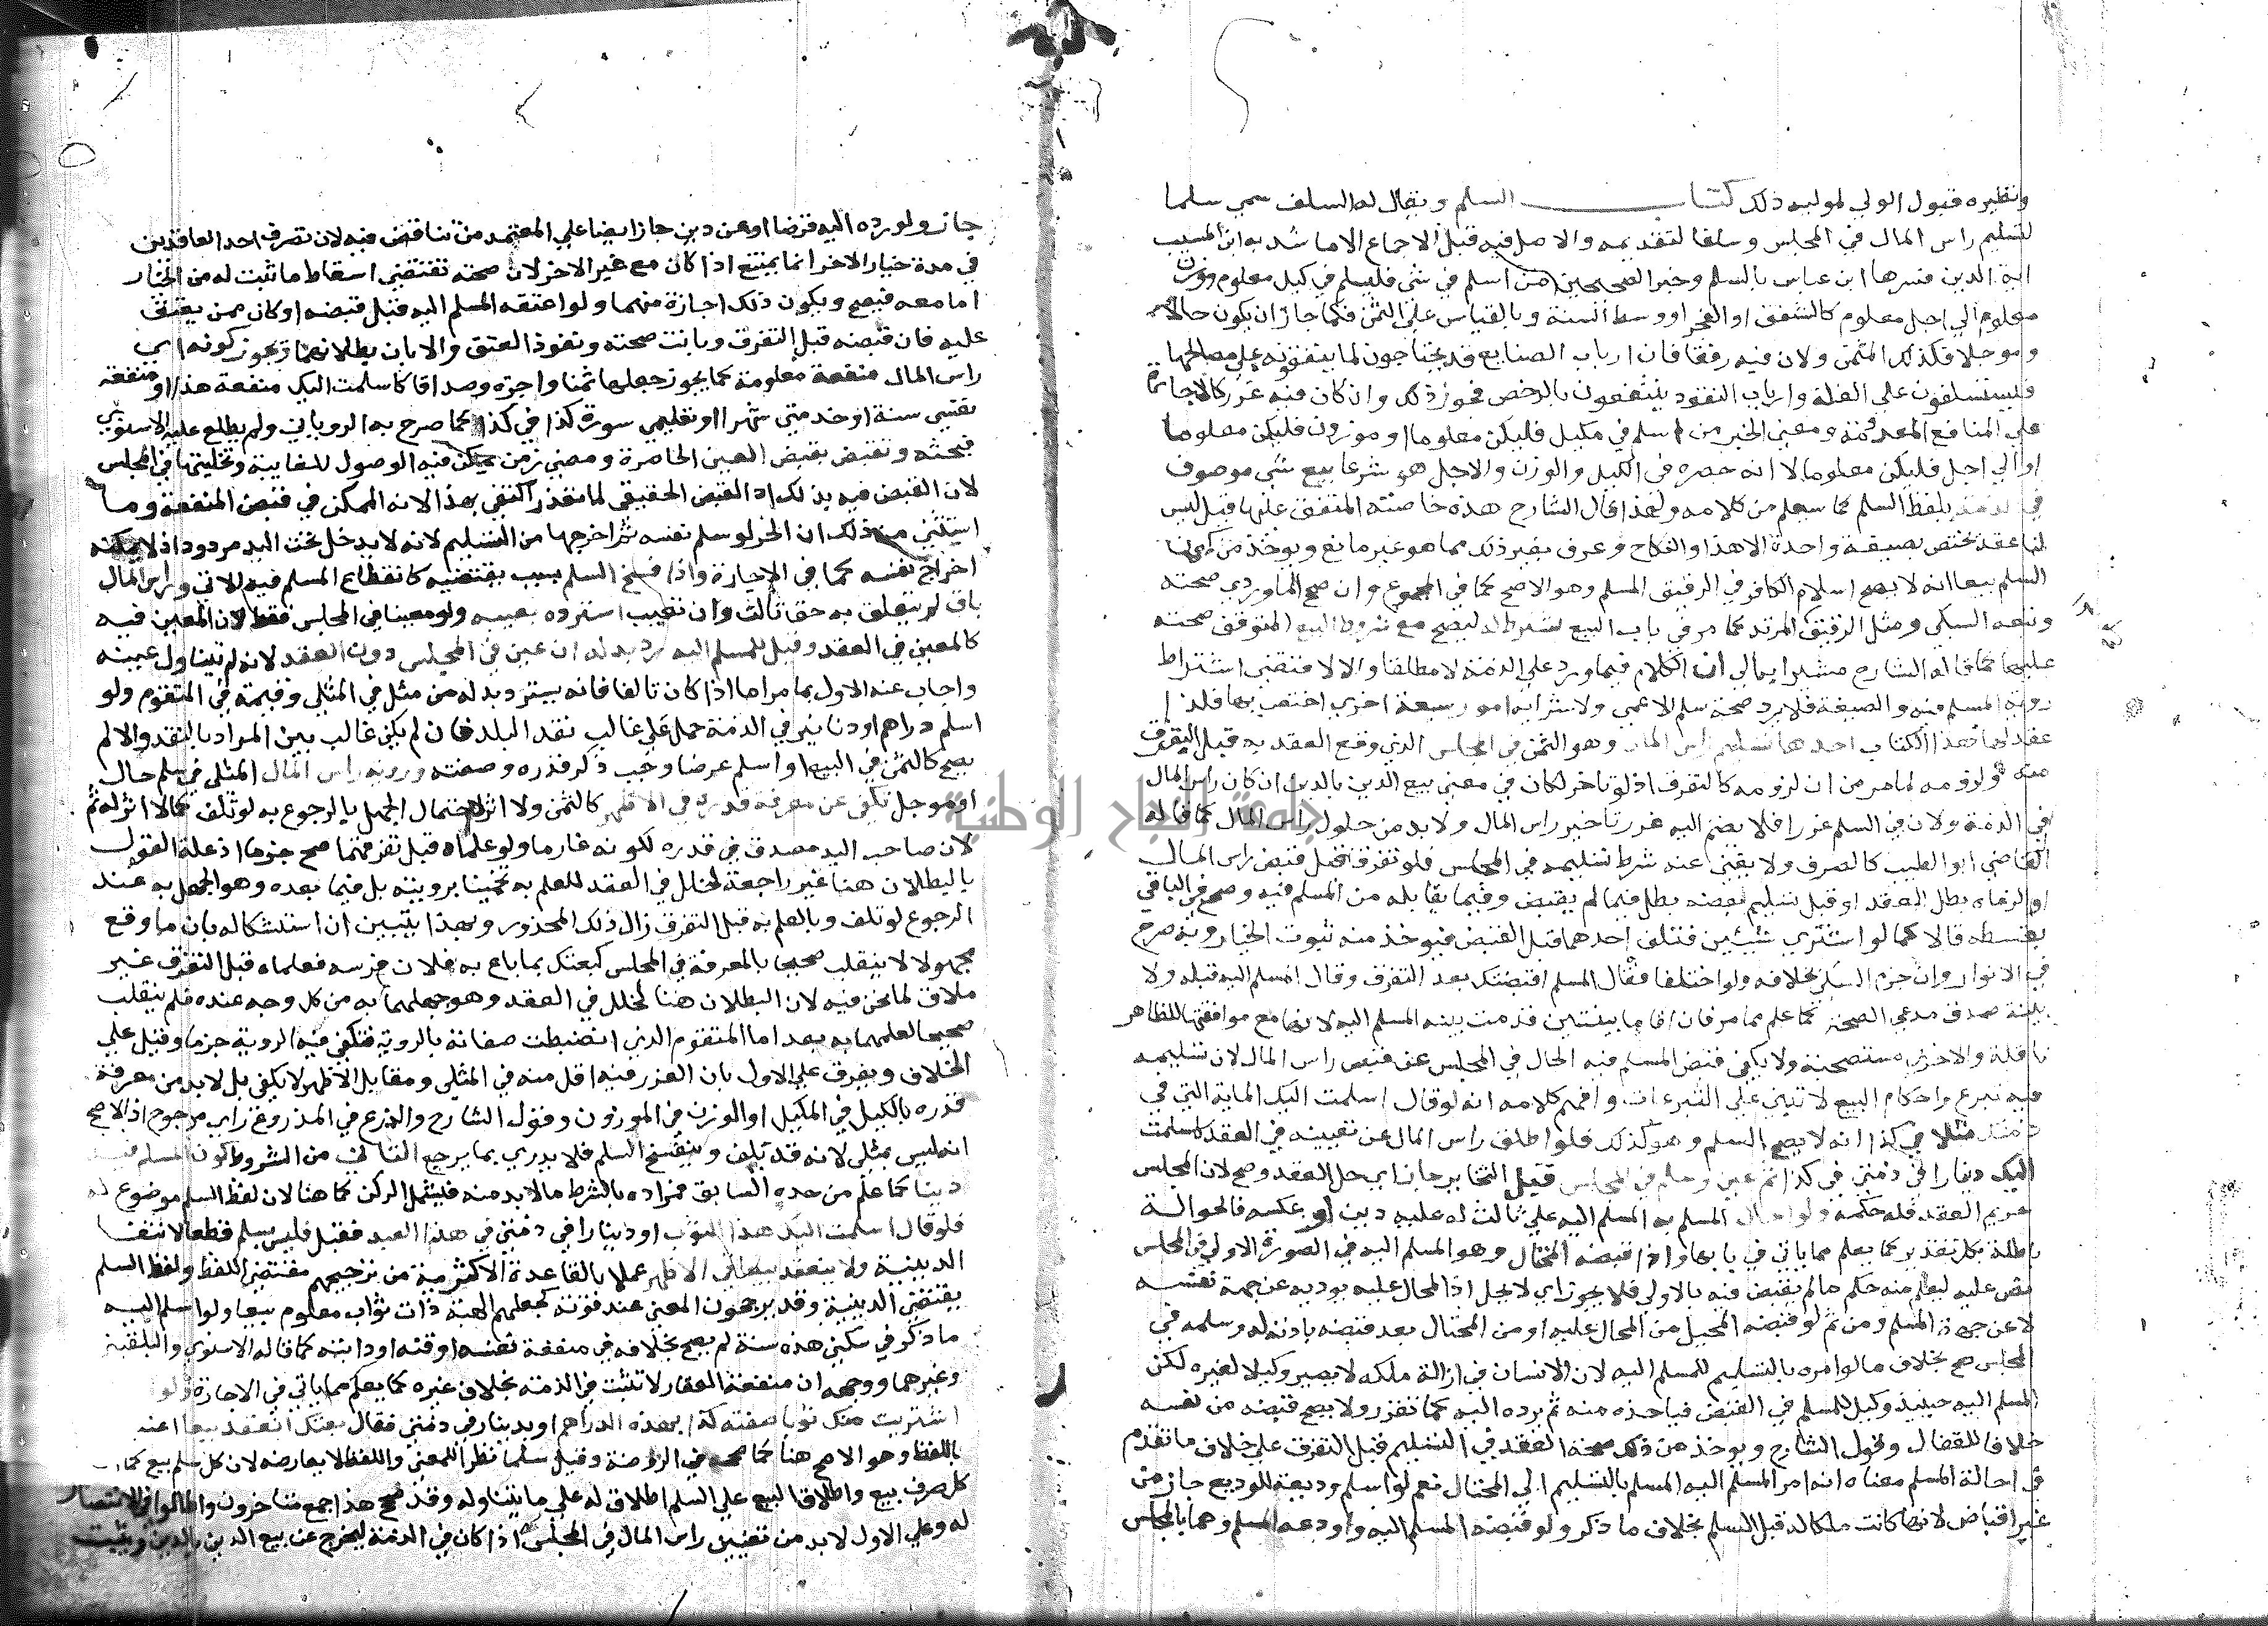 ونظيره قبول الولي لموليه ذلك كتاب السلم ويقال له السلف سمي سلما
لتسليم راس المال في المجلس وسلفا لتقديمه والاصل فيه قبل الاجماع الا ما شذ به ابن المسيب
اية الدين فسرها ابن عباس بالسلم وخبر الصحيحين من اسلم في شي فليسلم في كيل معلوم ووزن
معلوم الي اجل معلوم كالشفق او الفجر او وسط السنة وبالقياس علي الثمن فكما جاز ان يكون حالا
وموجلا فكذلك المثمن ولان فيه رفقا فان ارباب الضياع قد يحتاجون لما ينفقونه علي مصالحها
فيستسلفون علي الغلة وارباب النقود ينتفعون بالرخص فجوز ذلك وان كان فيه غرر كالاجارة
علي المنافع المعدومة ومعني الخبر من اسلم في مكيل فليكن معلوما او موزون فليكن معلوما
او الي اجل فليكن معلوما لا انه حصره في الكيل والوزن والاجل هو شرعا بيع شي موصوف
في الذمة بلفظ السلم كما سيعلم من كلامه ولهذا قال الشارح هذه خاصته المتفق عليها قيل ليس
لنا عقد يختص بصيغة واحدة الا هذا والنكاح وعرف بغير ذلك مما هو غير مانع ويوخذ من كون
السلم بيعا انه لا يصح اسلام الكافر في الرقيق المسلم وهو الاصح كما في المجموع وان صحح الماوردي صحته
وتبعه السبكي ومثل الرقيق المرتد كما مر في باب البيع يشترط له ليصح مع شروط البيع المتوقف صحته
عليها كما قاله الشارح مشيرا به الي ان الكلام فيما ورد علي الذمة لا مطلقا والا لاقتضي اشتراط
روية المسلم فيه والصيغة فلا يرد صحة سلم الاعمي ولا شرايه امور سبعة اخري اختص بها فلذا
عقد لها هذا الكتاب احدها تسليم راس المال وهو الثمن في المجلس الذي وقع العقد به قبل التفرق
منه ولزومه لما مر من ان لزومه كالتفرق اذ لو تاخر لكان في معني بيع الدين بالدين ان كان راس المال
في الذمة ولان في السلم غررا فلا يضم اليه غرر تاخير راس المال ولا بد من حلول راس المال كما قاله
القاضي ابو الطيب كالصرف ولا يغني عنه شرط تسليمه في المجلس فلو تفرقا قبل قبض راس المال
او الزماه بطل العقد او قبل تسليم بعضه بطل فيما لم يقبض وفيما يقابله من المسلم فيه وصح في الباقي
بقسطه قالا كما لو اشتري شيئين فتلف احدهما قبل القبض فيوخذ منه ثبوت الخيار وبه صرح
في الانوار وان جزم السبكي بخلافه ولو اختلفا فقال المسلم اقبضتك بعد التفرق وقال المسلم اليه قبله ولا
بينة صدق مدعي الصحة كما علم مما مر فان اقاما بينتين قدمت بينة المسلم اليه لانها مع موافقتها للظاهر
ناقلة والاخري مستصحبة ولا يكفي قبض المسلم فيه الحال في المجلس عن قبض راس المال لان تسليمه
فيه تبرع واحكام البيع لا تبني علي التبرعات وافهم كلامه انه لو قال اسلمت اليك الماية التي في
ذمتك مثلا في كذا انه لا يصح السلم وهو كذلك فلو اطلق راس المال عن تعيينه في العقد كاسلمت
اليك دينارا في ذمتي في كذا ثم عين وسلم في المجلس قبل التخاير جاز اي حل العقد وصح لان المجلس
حريم العقد فله حكمه ولو احال المسلم به المسلم اليه علي ثالث له عليه دين او عكسه فالحوالة
باطلة بكل تقدير كما يعلم مما ياتي في بابها واذا قبضه المحتال وهو المسلم اليه في الصورة الاولي في المجلس
نص عليه ليعلم منه حكم ما لم يقبض فيه بالاولي فلا يجوز اي لا يحل اذ المحال عليه يوديه عن جهة نفسه
لا عن جهة المسلم ومن ثم لو قبضه المحيل من المحال عليه او من المحتال بعد قبضه باذنه له وسلمه في
المجلس صح بخلاف ما لو امره بالتسليم للمسلم اليه لان الانسان في ازالة ملكه لا يصير وكيلا لغيره لكن
المسلم اليه حينيذ وكيل للمسلم في القبض فياخذه منه ثم يرده اليه كما تقرر ولا يصح قبضه من نفسه
خلافا للقفال وبحول الشارح ويوخذ من ذلك صحة العقد في التسليم قبل التفرق علي خلاف ما تقدم
في احالة المسلم معناه انه امر المسلم اليه المسلم بالتسليم الي المحتال نعم لو اسلم وديعة للوديع جاز من
غير اقباض لانها كانت ملكا له قبل السلم بخلاف ما ذكر ولو قبضه المسلم اليه واودعه المسلم وهما بالمجلس
جاز ولو رده اليه قرضا او عن دين جاز ايضا علي المعتمد من تناقض فيه لان تصرف احد العاقدين
في مدة خيار الاخر انما يمتنع اذا كان مع غير الاخر لان صحته تقتضي اسقاط ما ثبت له من الخيار
اما معه فيصح ويكون ذلك اجازة منهما ولو اعتقه المسلم اليه قبل قبضه او كان ممن يعتق
عليه فان قبضه قبل التفرق وبانت صحته ونفوذ العتق والا بان بطلانهما ويجوز كونه اي
راس المال منفعة معلومة كما يجوز جعلها ثمنا واجرة وصداقا كاسلمت اليك منفعة هذا او منفعة
نفسي سنة او خدمتي شهرا او تعليمي سورة كذا في كذا كما صرح به الروياني ولم يطلع عليه الاسنوي
فبحثه وتقبض بقبض العين الحاضرة ومضي زمن يمكن فيه الوصول للغايبة وتخليتها في المجلس
لان القبض فيه بذلك اذ القبض الحقيقي لما تعذر اكتفي بهذا لانه الممكن في قبض المنفعة وما
استثني من ذلك ان الحر لو سلم نفسه ثم اخرجها من التسليم لانه لا يدخل تحت اليد مردود اذ لا يمكنه
اخراج نفسه كما في الاجارة واذا فسخ السلم بسبب يقتضيه كانقطاع المسلم فيه الاتي وراس المال
باق لم يتعلق به حق ثالث وان تعيب استرده بعينه ولو معينا في المجلس فقط لان المعين فيه
كالمعين في العقد وقيل للمسلم اليه رد بدله ان عين في المجلس دون العقد لانه لم يتناول عينه
واجاب عنه الاول بما مر اما اذا كان تالفا فانه يسترد بدله من مثل في المثلي وقيمة في المتقوم ولو
اسلم دراهم او دنانير في الذمة حمل علي غالب نقد البلد فان لم يكن غالب بين المراد بالنقد والا لم
يصح كالثمن في البيع او اسلم عرضا وجب ذكر قدره وصفته وروية راس المال المثلي في سلم حال
او موجل تكفي عن معرفة قدره في الاظهر كالثمن ولا اثر لاحتمال الجهل بالرجوع به لو تلف كما لا اثر له ثم
لان صاحب اليد مصدق في قدره لكونه غارما ولو علماه قبل تفرقهما صح جزما اذ علة القول
بالبطلان هنا غير راجعة لخلل في العقد للعلم به تخمينا برويته بل فيما بعده وهو الجهل به عند
الرجوع لو تلف وبالعلم به قبل التفرق زال ذلك المحذور وبهذا يتبين ان استشكاله بان ما وقع
مجهولا لا ينقلب صحيحا بالمعرفة في المجلس كبعتك بما باع به فلان فرسه فعلماه قبل التفرق غير
ملاق لما نحن فيه لان البطلان هنا لخلل في العقد وهو جهلهما به من كل وجه عنده فلم ينقلب
صحيحا لعلمهما به بعد اما المتقوم الذي انضبطت صفاته بالروية فتكفي فيه الروية جزما وقيل علي
الخلاف ويفرق علي الاول بان الغرر فيه اقل منه في المثلي ومقابل الاظهر لا يكفي بل لا بد من معرفة
قدره بالكيل في المكيل او الوزن في الموزون وقول الشارح والذرع في المذروع راي مرجوح اذ الاصح
انه ليس بمثلي لانه قد يتلف وينفسخ السلم فلا يدري بما يرجع الثاني من الشروط كون المسلم فيه
دينا كما علم من حده السابق فمراده بالشرط ما لا بد منه فليشمل الركن كما هنا لان لفظ السلم موضوع له
فلو قال اسلمت اليك هذا الثوب او دينارا في ذمتي في هذا العبد فقبل فليس بسلم قطعا لانتفا
الدينية ولا ينعقد بيعا في الاظهر عملا بالقاعدة الاكثرية من ترجيحهم مقتضي اللفظ ولفظ السلم
يقتضي الدينية وقد يرجحون المعني عند قوته كجعلهم الهبة ذات ثواب معلوم بيعا ولو اسلم اليه
ما ذكر في سكني هذه سنة لم يصح بخلافه في منفعة نفسه او قنه او دابته كما قاله الاسنوي والبلقيني
وغيرهما ووجهه ان منفعة العقار لا تثبت في الذمة بخلاف غيره كما يعلم مما ياتي في الاجارة ولو
اشتريت منك ثوبا صفته كذا بهذه الدراهم او بدينار في ذمتي فقال بعتك انعقد بيعا اعتبارا
باللفظ وهو الاصح هنا كما صححه في الروضة وقيل سلما نظرا للمعني واللفظ لا يعارضه لان كل سلم بيع كما ان
كل صرف بيع واطلاق البيع علي السلم اطلاق له علي ما يتناوله وقد صحح هذا جمع متاخرون واطالوا في الانتصار
له وعلي الاول لا بد من تعيين راس المال في المجلس اذا كان في الذمة ليخرج عن بيع الدين بالدين ويثبت
جامعة النجاح الوطنية